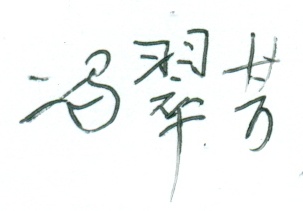 冯翠芳